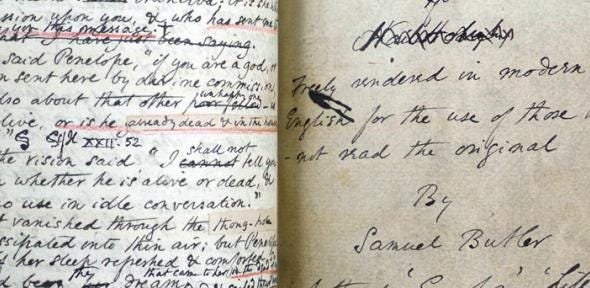 ssion upon you, & who has sent me
you this message.
that ye have just been saying.
said Penelope, "if you are a god, or
n sent here by divine commission,
lso about that other unhappy one
alive, or is he already dead & in the house
XXII. 52
shall not
the vision said "I cannot tell you
n whether he is alive or dead, &
o use in idle conversation."
t vanished through the thong-hole
ssipated into thin air; but Penelope
her sleep refreshed & comforted
thy that came to her in the dead
d been her dream
Freely rendered in modern
English for the use of those
not read the original
By
Samuel Butler